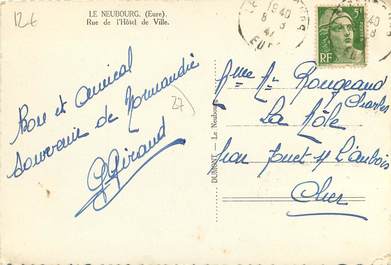 12€
LE NEUBOURG. (Eure).
Rue de l'Hôtel de Ville.
Bon et amical
souvenir de Normandie
27
G Giraud
DUMONT - Le Neubourg
19 40
8 - 3
47
EURE
RF
Rougeand
Charles
La Môle
par Jouet s/ l'Aubois
Cher